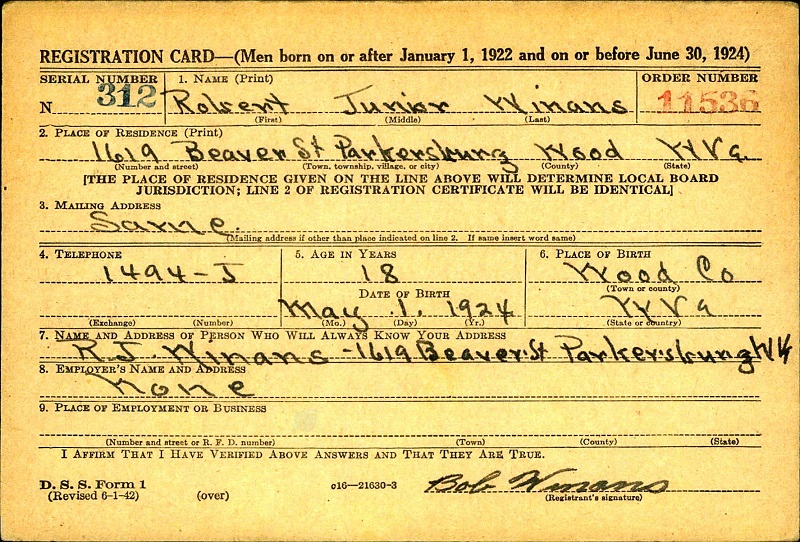 REGISTRATION CARD—(Men born on or after January 1, 1922 and on or before June 30, 1924)
SERIAL NUMBER 1. NAME (Print) ORDER NUMBER
N 312 Robert Junior Winans 11536
(First) (Middle) (Last)
2. PLACE OF RESIDENCE (Print)
1619 Beaver St Parkersburg Wood W Va.
(Number and street) (Town, township, village, or city) (County) (State)
[THE PLACE OF RESIDENCE GIVEN ON THE LINE ABOVE WILL DETERMINE LOCAL BOARD
JURISDICTION; LINE 2 OF REGISTRATION CERTIFICATE WILL BE IDENTICAL]
3. MAILING ADDRESS
Same.
(Mailing address if other than place indicated on line 2. If same insert word same)
4. TELEPHONE 5. AGE IN YEARS 6. PLACE OF BIRTH
1494-J 18 Wood Co
DATE OF BIRTH (Town or county)
May 1, 1924 W Va
(Exchange) (Number) (Mo.) (Day) (Yr.) (State or country)
7. NAME AND ADDRESS OF PERSON WHO WILL ALWAYS KNOW YOUR ADDRESS
R.J. Winans - 1619 Beaver St Parkersburg W V
8. EMPLOYER'S NAME AND ADDRESS
None
9. PLACE OF EMPLOYMENT OR BUSINESS
(Number and street or R. F. D. number) (Town) (County) (State)
I AFFIRM THAT I HAVE VERIFIED ABOVE ANSWERS AND THAT THEY ARE TRUE.
D. S. S. Form 1
(Revised 6-1-42) (over) c16—21630-3 Bob Winans
(Registrant's signature)